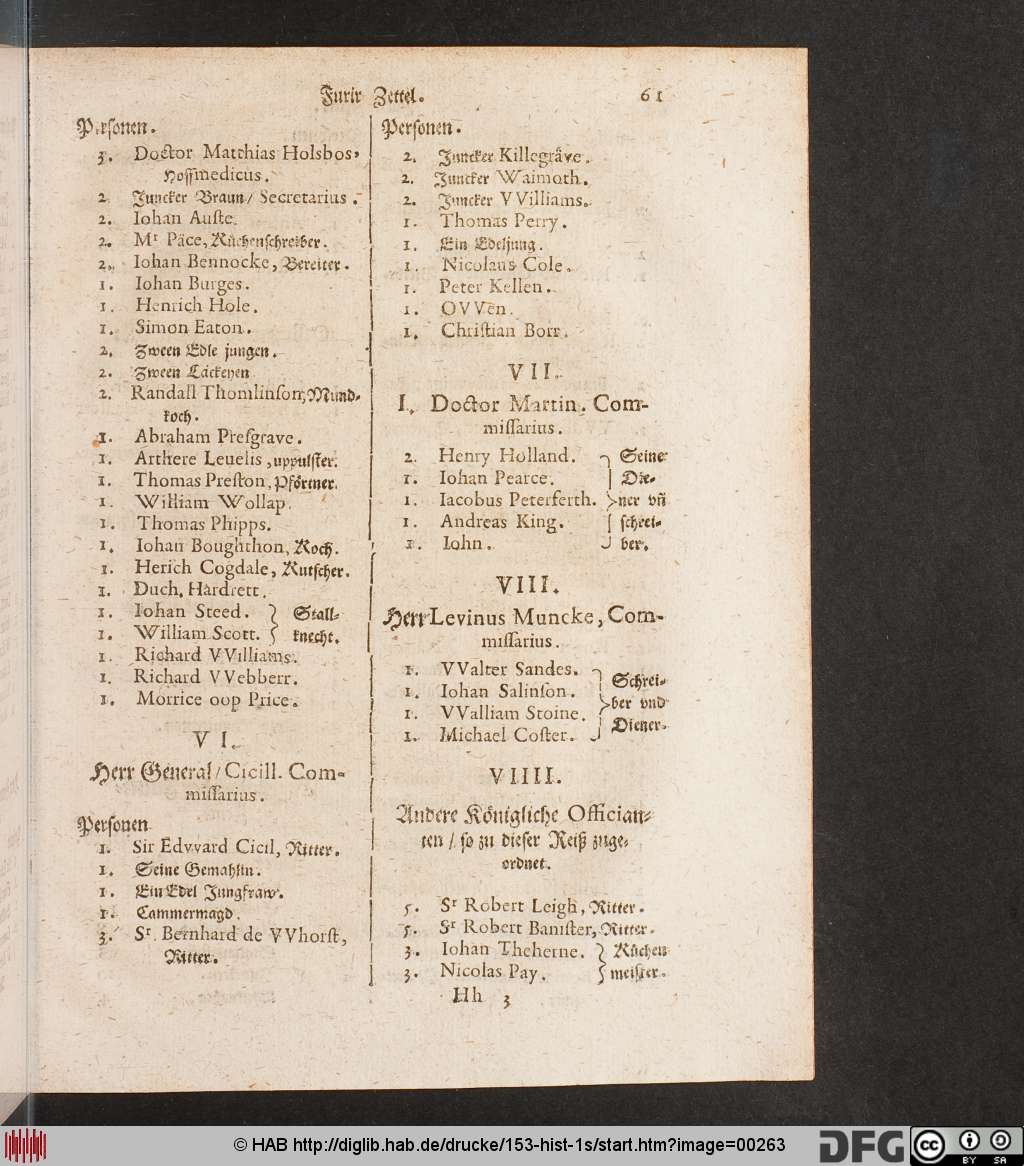 Furir Zettel. 61
Personen.
3. Doctor Matthias Holsbos,
Hoffmedicus.
2. Juncker Braun/ Secretarius.
2. Iohan Auſte.
2. Mr Päce, Küchenſchreiber.
2. Iohan Bennocke, Bereiter.
1. Iohan Burges.
1. Henrich Hole.
1. Simon Eaton.
2. Zween Edle jungen.
2. Zween Läckeyen
2. Randall Thomlinſon, Mund-
koch.
1. Abraham Preſgrave.
1. Arthere Leuelis, uppulſter.
1. Thomas Preſton, Pförtner.
1. William Wollap.
1. Thomas Phipps.
1. Iohan Boughthon, Koch.
1. Herich Cogdale, Kutſcher.
1. Duch. Hardrett.
1. Iohan Steed. } Stall-
1. William Scott. } knecht.
1. Richard VVilliams.
1. Richard VVebberr.
1. Morrice oop Price.
VI.
Herr General/ Cicill. Com-
miſſarius.
Personen
1. Sir Edvvard Cicil, Ritter.
1. Seine Gemahlin.
1. Ein Edel Jungfraw.
1. Cammermagd.
3. Sr. Bernhard de VVhorſt,
Ritter.
Personen.
2. Juncker Killegräve.
2. Juncker Waimoth.
2. Juncker VVilliams.
1. Thomas Perry.
1. Ein Edeljung.
1. Nicolaus Cole.
1. Peter Kellen.
1. OVVen.
1. Chriſtian Borr.
VII.
I. Doctor Martin. Com-
miſſarius.
2. Henry Holland. Seine
1. Iohan Pearce. Die-
1. Iacobus Peterferth. ner vñ
1. Andreas King. ſchrei-
1. Iohn. ber.
VIII.
Herr Levinus Muncke, Com-
miſſarius.
1. VValter Sandes.
1. Iohan Salinſon. Schrei-
1. VValliam Stoine. ber vnd
1. Michael Coſter. Diener.
VIIII.
Andere Königliche Offician-
ten / ſo zu dieſer Reiß zuge-
ordnet.
5. Sr Robert Leigh, Ritter.
5. Sr Robert Baniſter, Ritter.
3. Iohan Theherne. } Küchen
3. Nicolas Pay. } meiſter.
Hh 3
© HAB http://diglib.hab.de/drucke/153-hist-1s/start.htm?image=00263
DFG
cc BY SA